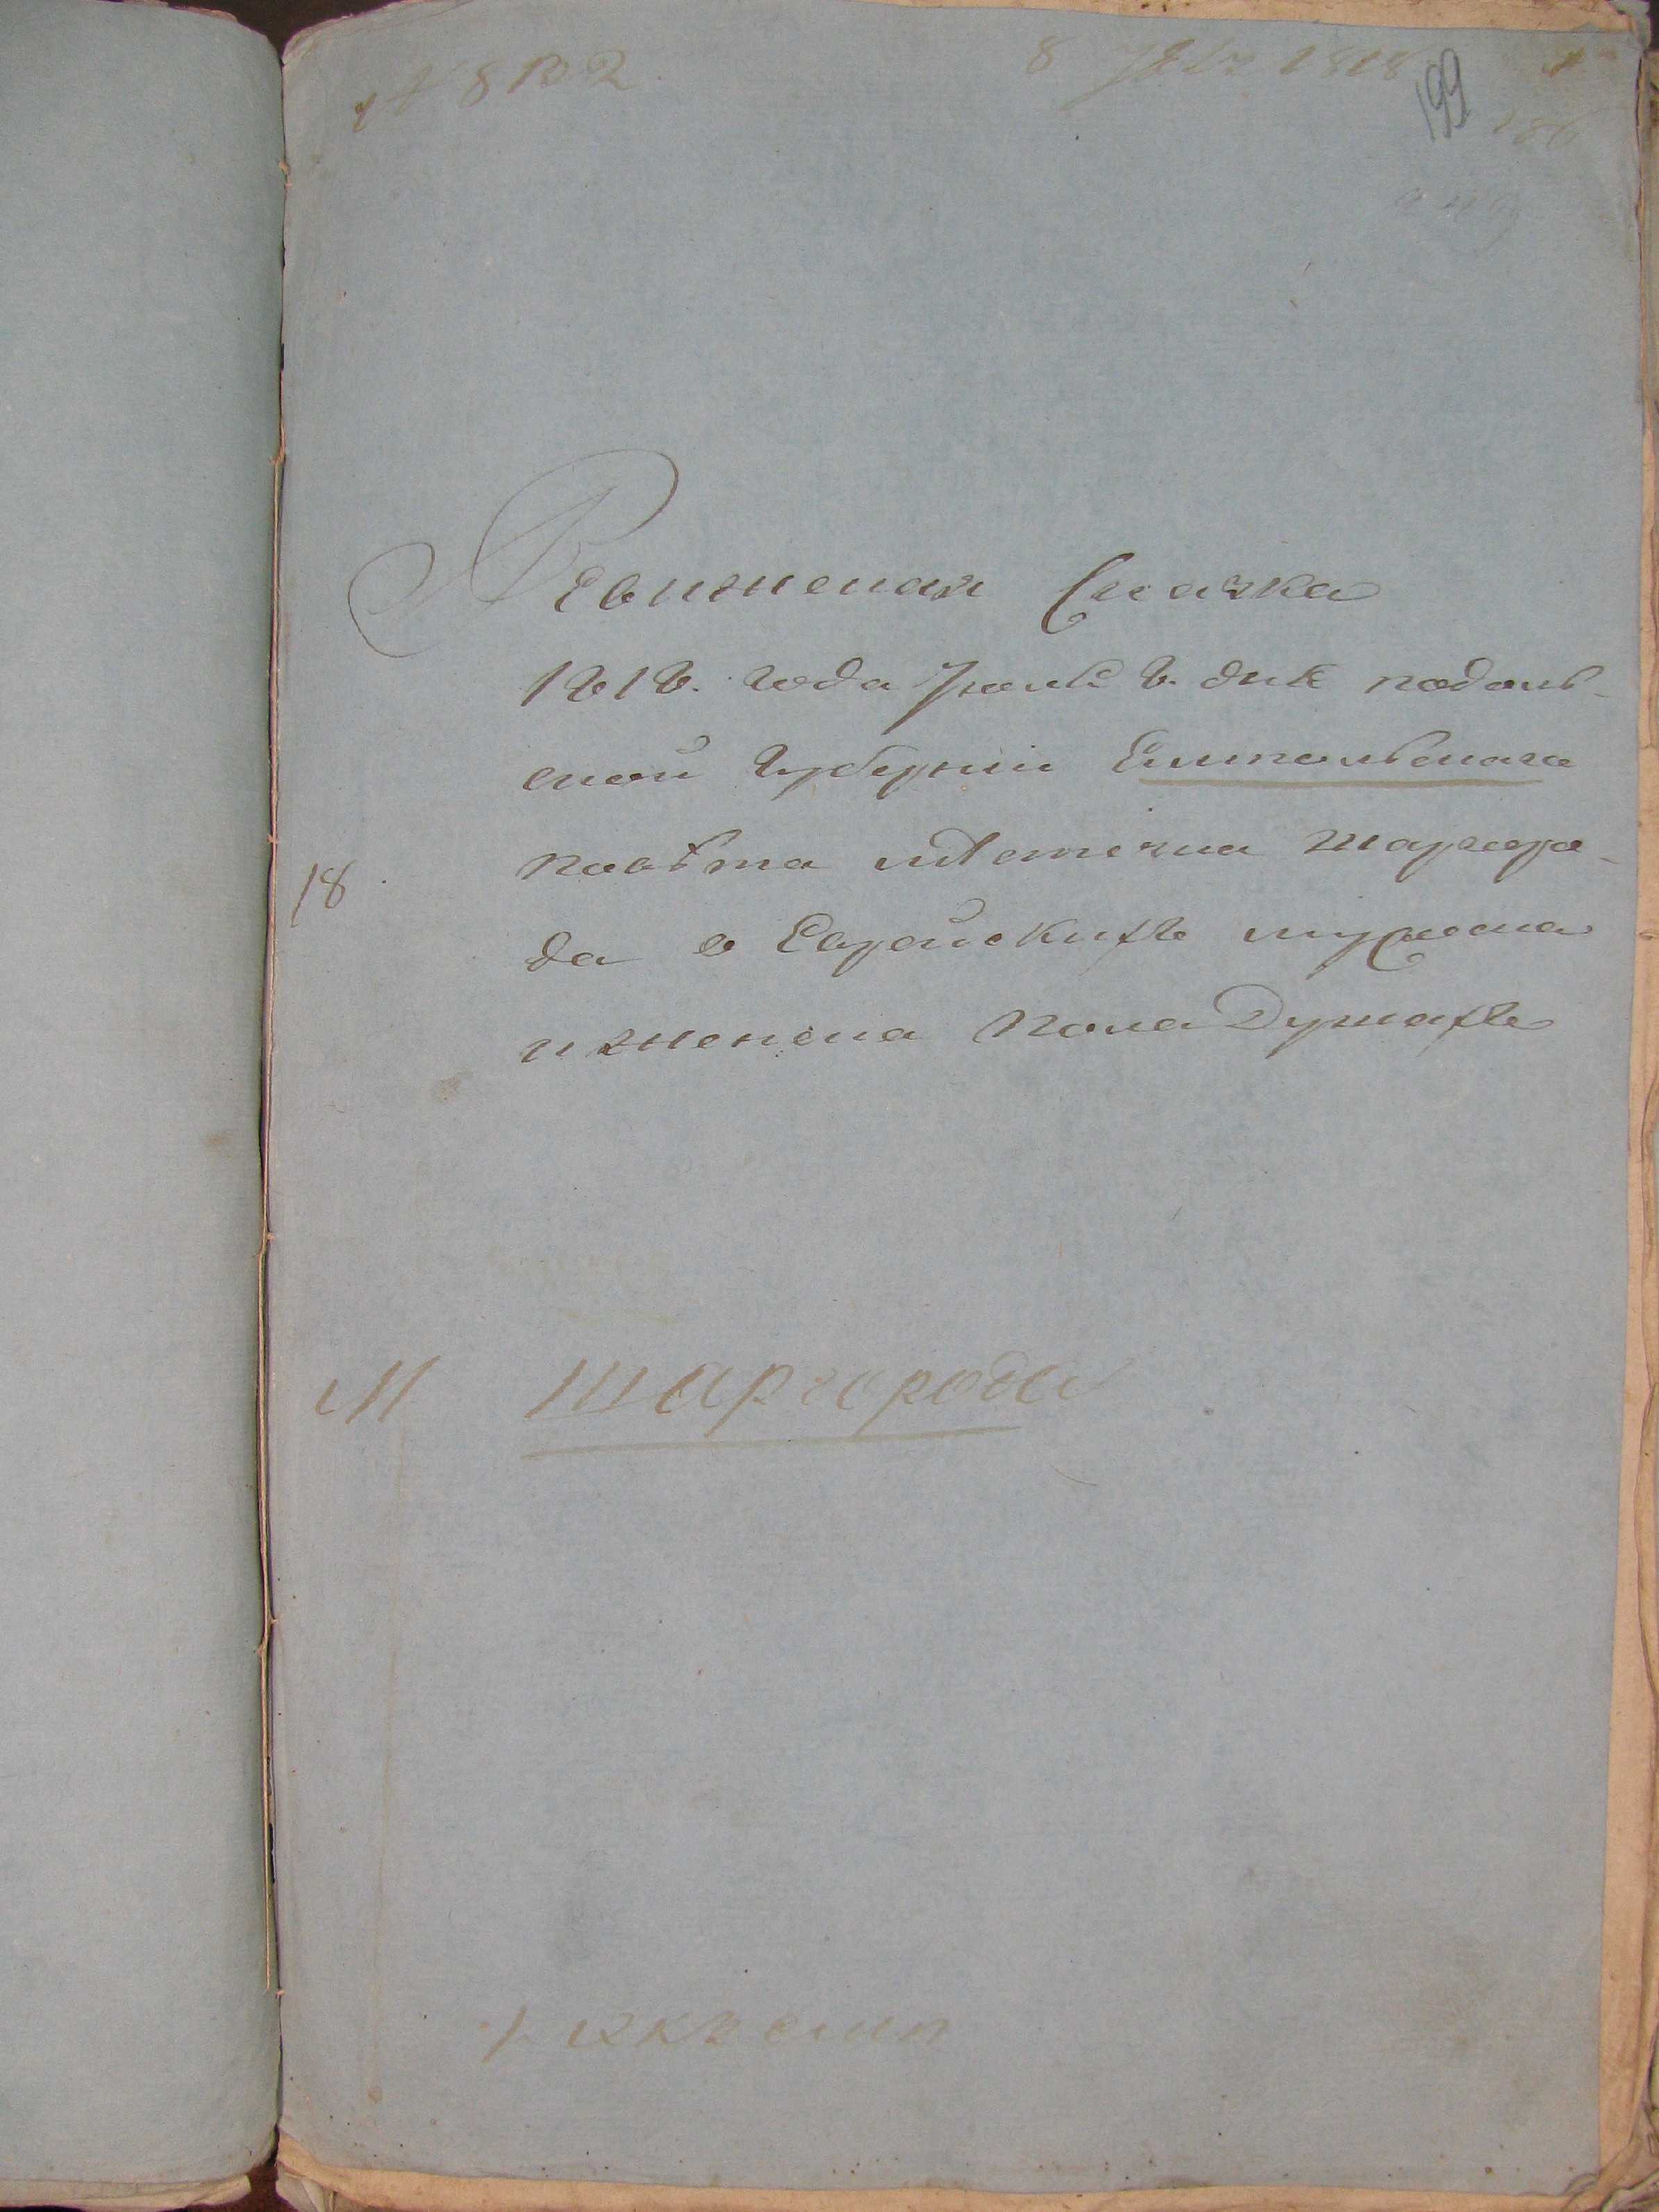 8 1818
199
186
Ревижская Сказка
1818. года Іюля 8. дня подоль-
ской губерніи Ямпольскаго
повѣта мѣстечка Шаргоро-
18
да о Еврейскихъ мужеска
и женска пола Душахъ
М Шаргорода